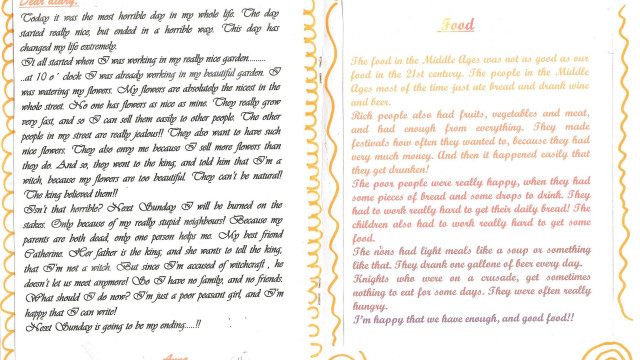 Dear diary,
Today it was the most horrible day in my whole life. The day
started really nice, but ended in a horrible way. This day has
changed my life extremely.
It all started when I was working in my really nice garden.........
..at 10 o' clock I was already working in my beautiful garden. I
was watering my flowers. My flowers are absolutely the nicest in the
whole street. No one has flowers as nice as mine. They really grow
very fast, and so I can sell them easily to other people. The other
people in my street are really jealous!! They also want to have such
nice flowers. They also envy me because I sell more flowers than
they do. And so, they went to the king, and told him that I'm a
witch, because my flowers are too beautiful. They can't be natural!
The king believed them!!
Isn't that horrible? Next Sunday I will be burned on the
stakes. Only because of my really stupid neighbours! Because my
parents are both dead, only one person helps me. My best friend
Catherine. Her father is the king, and she wants to tell the king,
that I'm not a witch. But since I'm accused of witchcraft , he
doesn't let us meet anymore! So I have no family, and no friends.
What should I do now? I'm just a poor peasant girl, and I'm
happy that I can write!
Next Sunday is going to be my ending.....!!
Anna
Food
The food in the Middle Ages was not as good as our
food in the 21st century. The people in the Middle
Ages most of the time just ate bread and drank wine
and beer.
Rich people also had fruits, vegetables and meat,
and had enough from everything. They made
festivals how often they wanted to, because they had
very much money. And then it happened easily that
they get drunken!
The poor people were really happy, when they had
some pieces of bread and some drops to drink. They
had to work really hard to get their daily bread! The
children also had to work really hard to get some
food.
The nons had light meals like a soup or something
like that. They drank one gallone of beer every day.
Knights who were on a crusade, get sometimes
nothing to eat for some days. They were often really
hungry.
I'm happy that we have enough, and good food!!